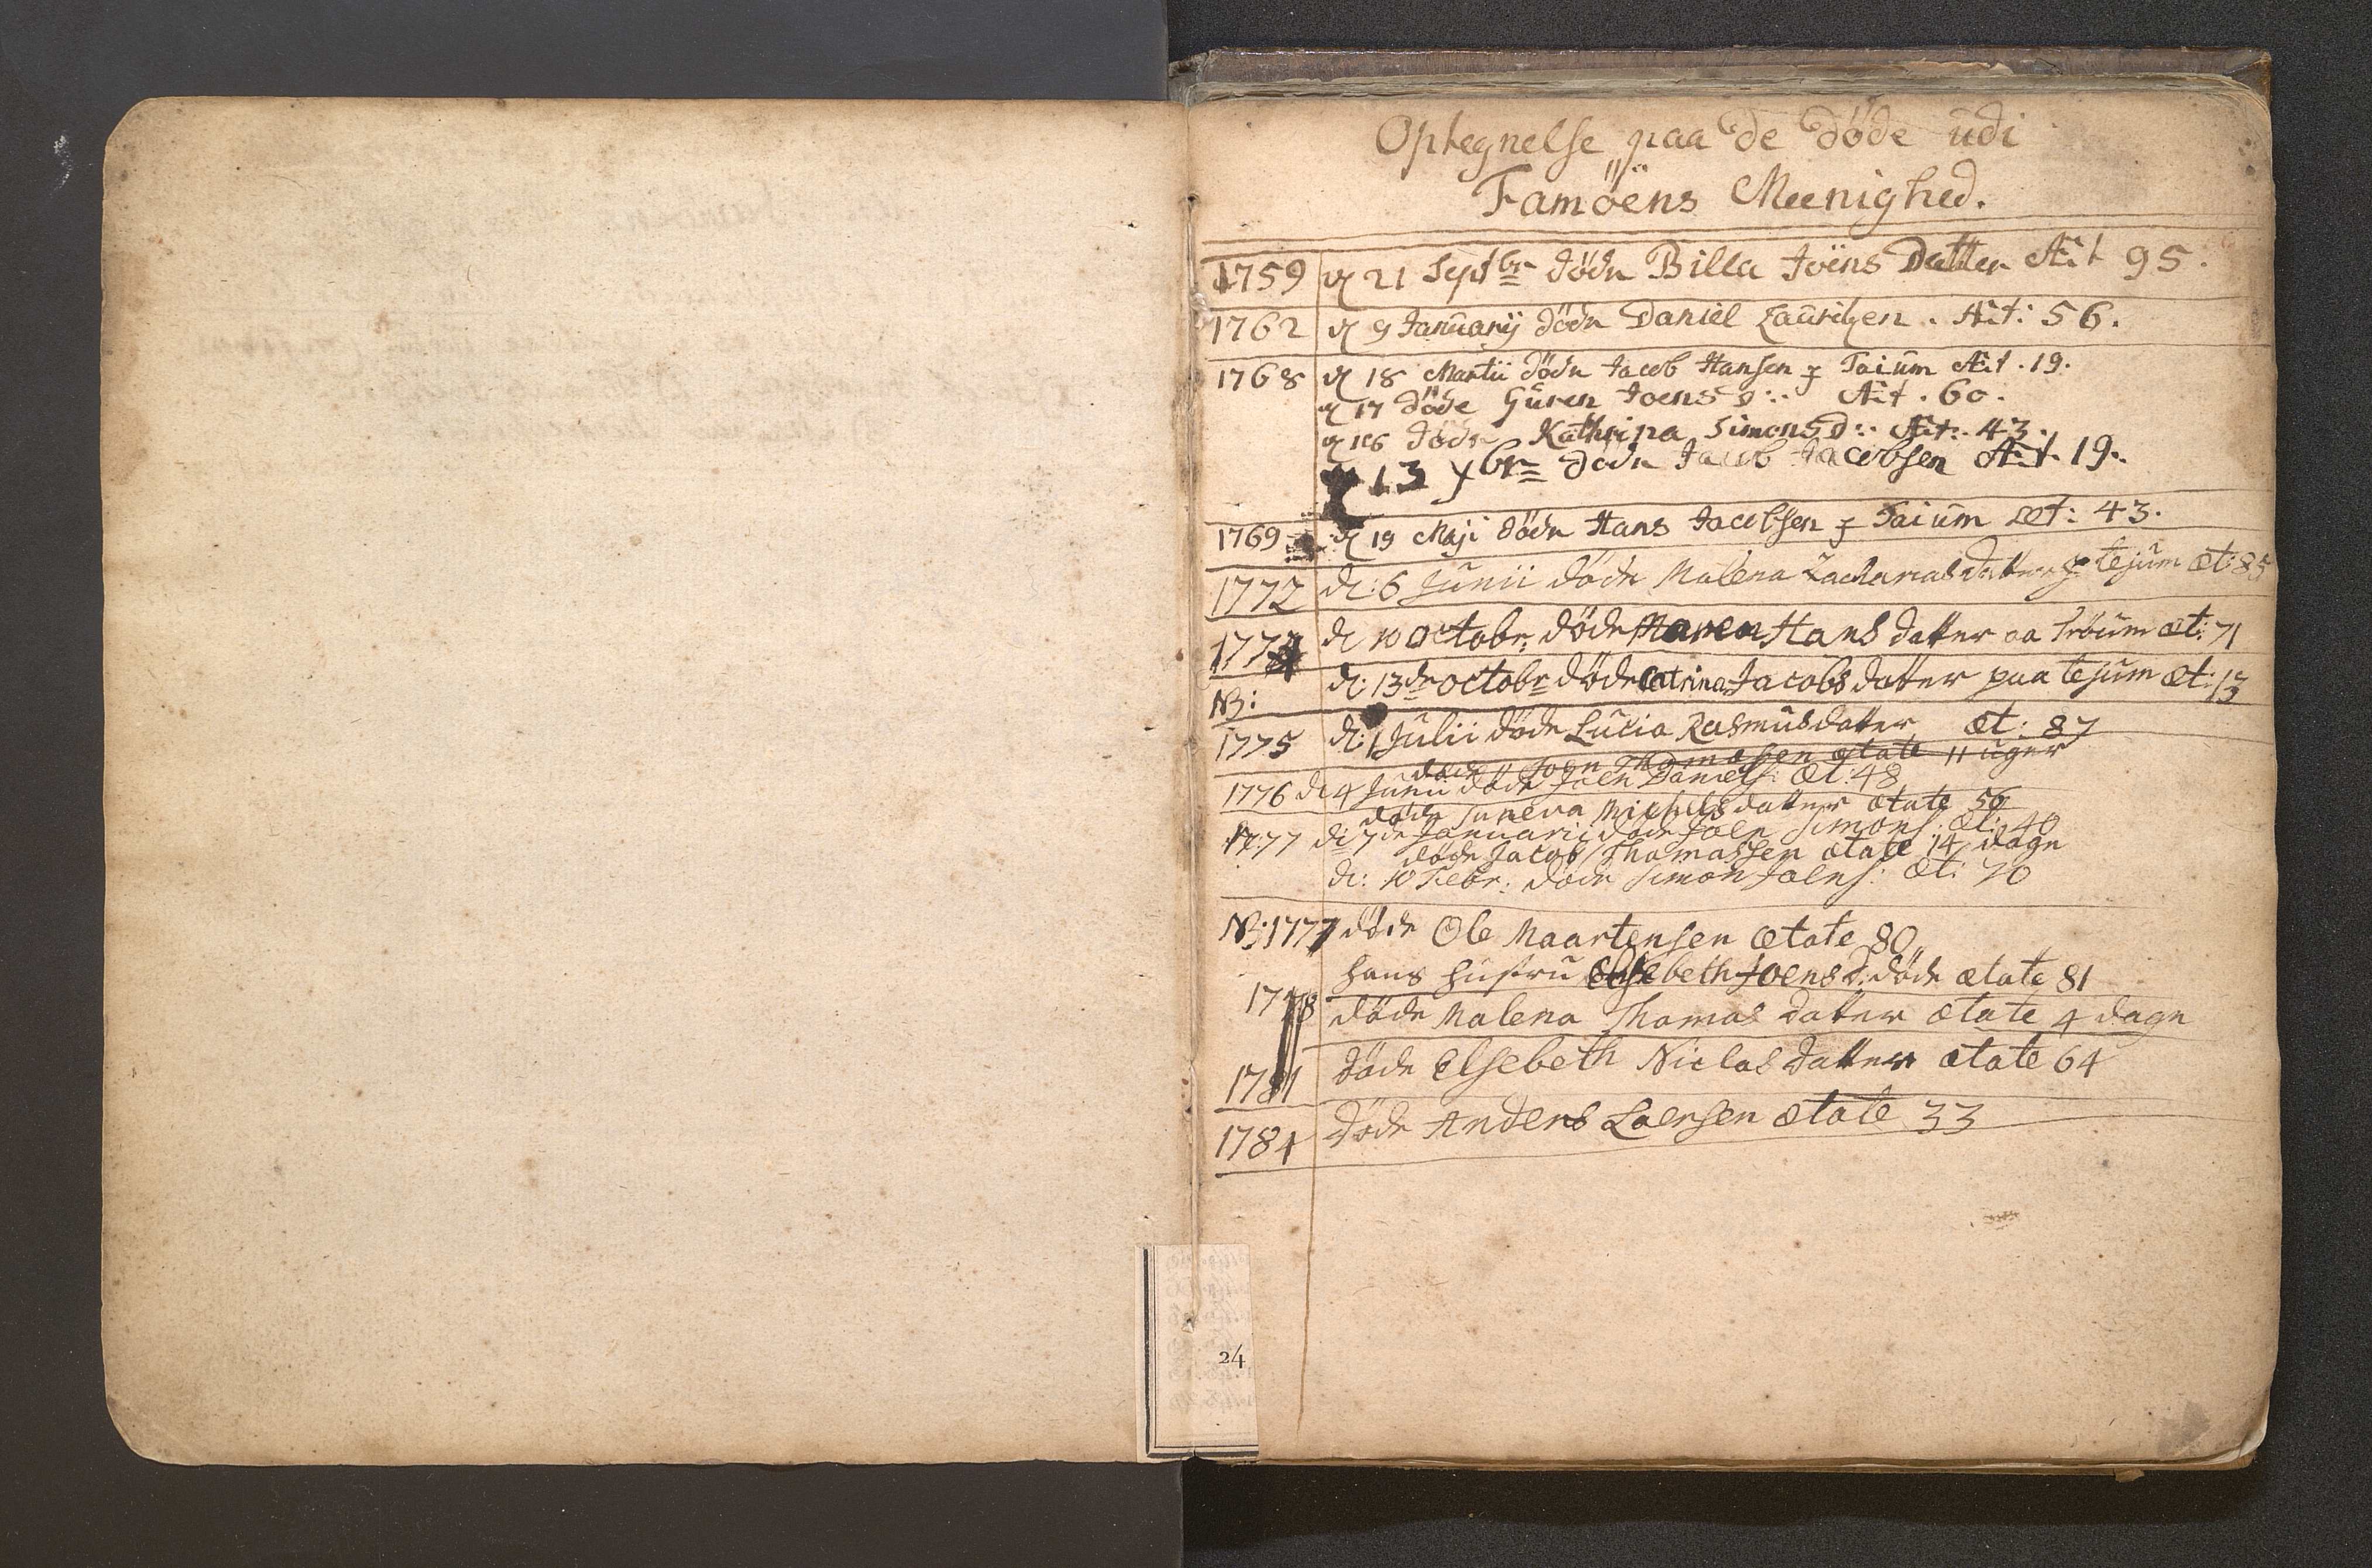 Optegnelse paa de döde udi
Famöens Meenighed.
1759 d 21 Septbr döde Billa Joens Datter Æt 95.
1762 d 9 Januarij döde Daniel Lauritzen. Æt: 56.
1768 d 18 Martii döde Jacob Hansen Taium Æt. 19.
d 17 döde Guren Joens D:. Æt. 60.
döde Kathrina Simons D:. Æt:. 43.
13 br döde Jacob Jacobsen Æt. 19.
1769 d 19 Maji döde Hans Jacobsen Taium æt: 43.
1772 d: 6 Junii döde Malena Zacharias datter tejum æt: 85
1774 d 10 Octobr döde Maren Hans datter æt: 71
NB: d: 13de octobr döde Catrina Jacobs datter paa tejum æt: 13
1775 d: 1 Julii döde Lucia Rasmus datter æt: 87
döde Thomassen ætate 11 uger
1776 d 4 Junii döde Joen Daniels: æt: 48
döde Michelsdatter ætate 56
1777 d: 7de Januarii döde Joen Simons: æt: 40
döde Jacob Thomassen ætate 14 dage
d: 10 Febr: döde Simon Joens: æt: 70
NB: 1777 döde Ole Maartensen ætate 80
hans hustru Elsebeth Joens D: döde ætate 81
1778 döde Malena Thomas datter ætate 4 dage
1781 döde Elsebeth Niclas datter ætate 64
1784 döde Anders Laersen ætate 33
24